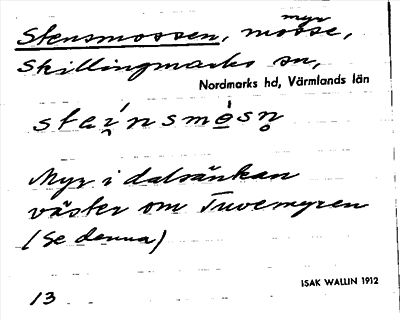 Stensmossen, mosse,
myr
Skillingmarks sn,
Nordmarks hd, Värmlands län
Myr i dalsänkan
väster om Tuvemyren
(Se denna)
ISAK WALLIN 1912
13